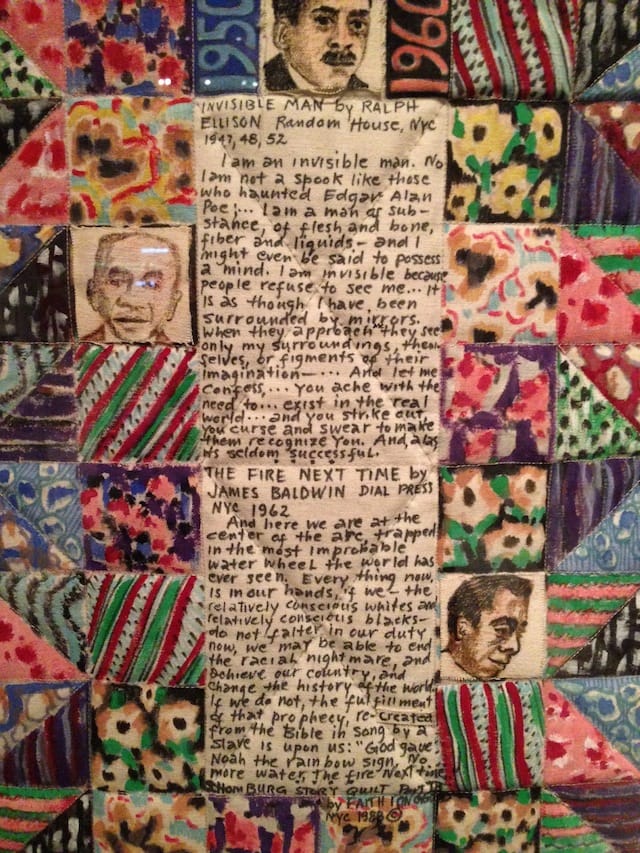 1950
1960
INVISIBLE MAN by RALPH
ELLISON Random House, NYC
1947, 48, 52
I am an invisible man. No
I am not a spook like those
who haunted Edgar Alan
Poe;... I am a man of sub-
stance, of flesh and bone,
fiber and liquids— and I
might even be said to possess
a mind. I am invisible because
people refuse to see me... It
is as though I have been
surrounded by mirrors.
When they approach they see
only my surroundings, them
selves, or figments of their
imagination—.... And let me
confess,... you ache with the
need to... exist in the real
world... and you strike out,
you curse and swear to make
them recognize you. And, alas
it's seldom successful.
THE FIRE NEXT TIME by
JAMES BALDWIN DIAL PRESS
NYC 1962
And here we are at the
center of the arc, trapped
in the most improbable
water wheel the world has
ever seen. Every thing now,
is in our hands, if we— the
relatively conscious whites and
relatively conscious blacks—
do not falter in our duty
now, we may be able to end
the racial nightmare, and
achieve our country, and
change the history of the world.
If we do not, the fulfillment
of that prophecy, re-created
from the Bible in song by a
slave is upon us: "God gave
Noah the rainbow sign, No
more water, the fire next time
SCHOMBURG STORY QUILT Part
by FAITH RINGGOLD
NYC 1988 ©